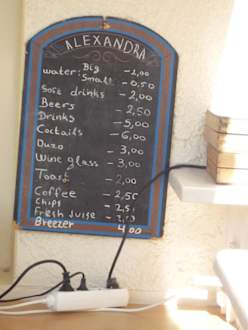 ALEXANDRA
water: Big - 1,00
Small - 0,50
Soft drinks - 2,00
Beers - 2,50
Drinks - 5,00
Coctails - 6,00
Ouzo - 3,00
Wine glass - 3,00
Toast - 2,00
Coffee - 2,50
Chips
Fresh Juise
Breezer 4,00